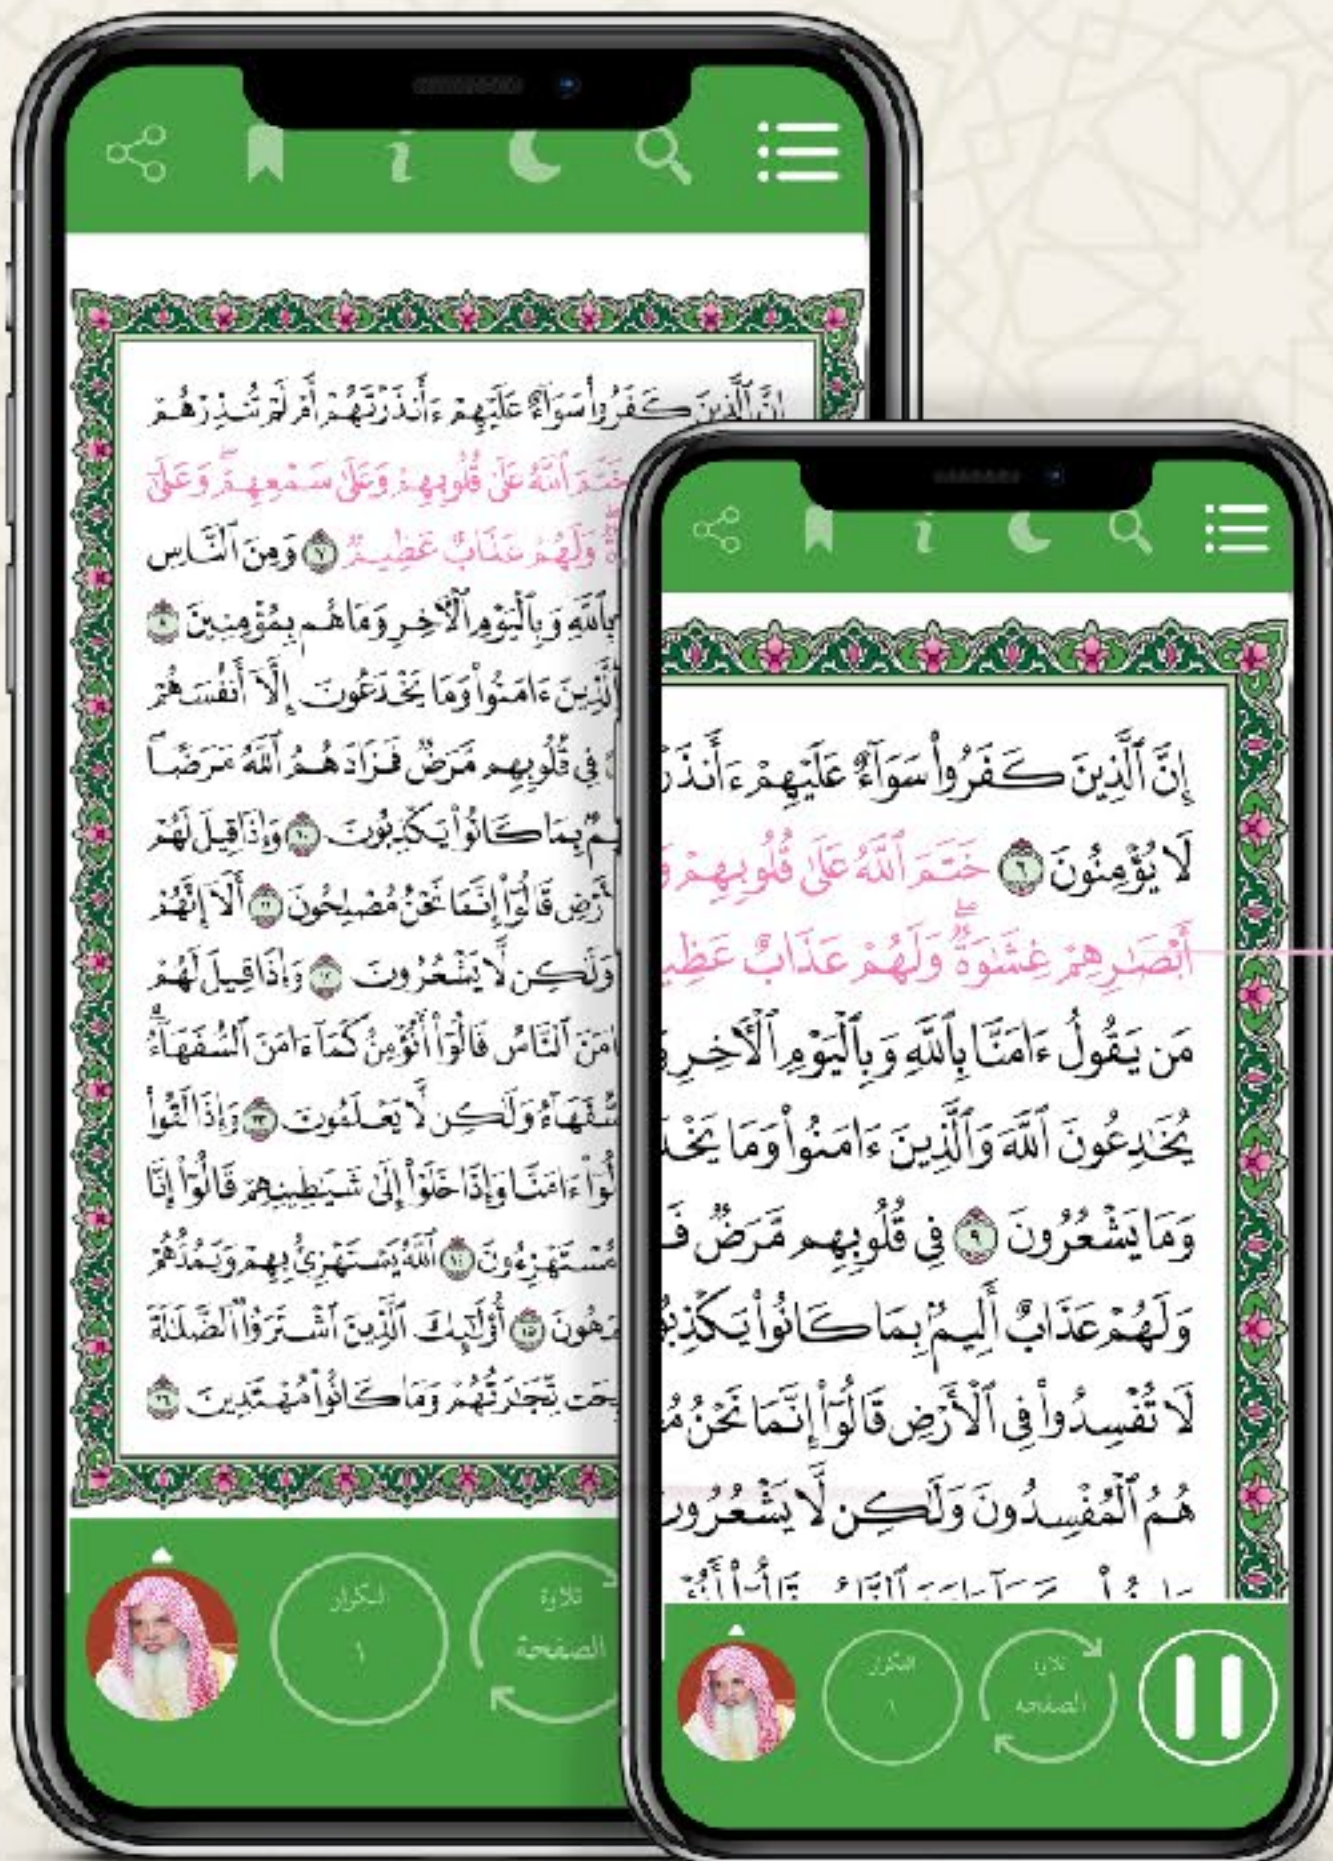 إِنَّ ٱلَّذِينَ كَفَرُوا۟ سَوَآءٌ عَلَيْهِمْ ءَأَنذَرْتَهُمْ أَمْ لَمْ تُنذِرْهُمْ
خَتَمَ ٱللَّهُ عَلَىٰ قُلُوبِهِمْ وَعَلَىٰ سَمْعِهِمْ ۖ وَعَلَىٰٓ
وَلَهُمْ عَذَابٌ عَظِيمٌ ٧ وَمِنَ ٱلنَّاسِ
بِٱللَّهِ وَبِٱلْيَوْمِ ٱلْءَاخِرِ وَمَا هُم بِمُؤْمِنِينَ ٨
ٱلَّذِينَ ءَامَنُوا۟ وَمَا يَخْدَعُونَ إِلَّآ أَنفُسَهُمْ
فِى قُلُوبِهِم مَّرَضٌ فَزَادَهُمُ ٱللَّهُ مَرَضًا
بِمَا كَانُوا۟ يَكْذِبُونَ ١٠ وَإِذَا قِيلَ لَهُمْ
قَالُوٓا۟ إِنَّمَا نَحْنُ مُصْلِحُونَ ١١ أَلَآ إِنَّهُمْ
وَلَـٰكِن لَّا يَشْعُرُونَ ١٢ وَإِذَا قِيلَ لَهُمْ
ٱلنَّاسُ قَالُوٓا۟ أَنُؤْمِنُ كَمَآ ءَامَنَ ٱلسُّفَهَآءُ ۗ
وَلَـٰكِن لَّا يَعْلَمُونَ ١٣ وَإِذَا لَقُوا۟
ءَامَنَّا وَإِذَا خَلَوْا۟ إِلَىٰ شَيَـٰطِينِهِمْ قَالُوٓا۟ إِنَّا
مُسْتَهْزِءُونَ ١٤ ٱللَّهُ يَسْتَهْزِئُ بِهِمْ وَيَمُدُّهُمْ
١٥ أُو۟لَـٰٓئِكَ ٱلَّذِينَ ٱشْتَرَوُا۟ ٱلضَّلَـٰلَةَ
تِّجَـٰرَتُهُمْ وَمَا كَانُوا۟ مُهْتَدِينَ ١٦
تلاوة
الصفحة
التكرار
١
إِنَّ ٱلَّذِينَ كَفَرُوا۟ سَوَآءٌ عَلَيْهِمْ ءَأَنذَرْ
لَا يُؤْمِنُونَ ٦ خَتَمَ ٱللَّهُ عَلَىٰ قُلُوبِهِمْ وَ
أَبْصَـٰرِهِمْ غِشَـٰوَةٌ ۖ وَلَهُمْ عَذَابٌ عَظِي
مَن يَقُولُ ءَامَنَّا بِٱللَّهِ وَبِٱلْيَوْمِ ٱلْءَاخِرِ وَ
يُخَـٰدِعُونَ ٱللَّهَ وَٱلَّذِينَ ءَامَنُوا۟ وَمَا يَخْدَ
وَمَا يَشْعُرُونَ ٩ فِى قُلُوبِهِم مَّرَضٌ فَ
وَلَهُمْ عَذَابٌ أَلِيمٌۢ بِمَا كَانُوا۟ يَكْذِبُ
لَا تُفْسِدُوا۟ فِى ٱلْأَرْضِ قَالُوٓا۟ إِنَّمَا نَحْنُ مُ
هُمُ ٱلْمُفْسِدُونَ وَلَـٰكِن لَّا يَشْعُرُونَ
تلاوة
الصفحة
التكرار
١